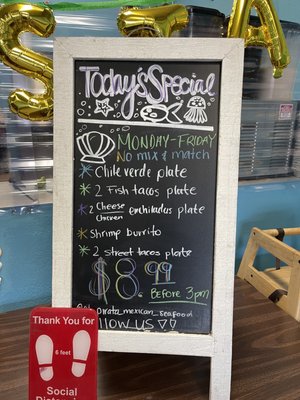 STA
Today's Special
MONDAY-FRIDAY
No mix & match
* Chile verde plate
* 2 Fish tacos plate
* 2 Cheese enchiladas plate
Chicken
* Shrimp burrito
* 2 street tacos plate
$8.99
Before 3pm
rata_mexican_seafood
ollow us
Thank You for
6 feet
Social